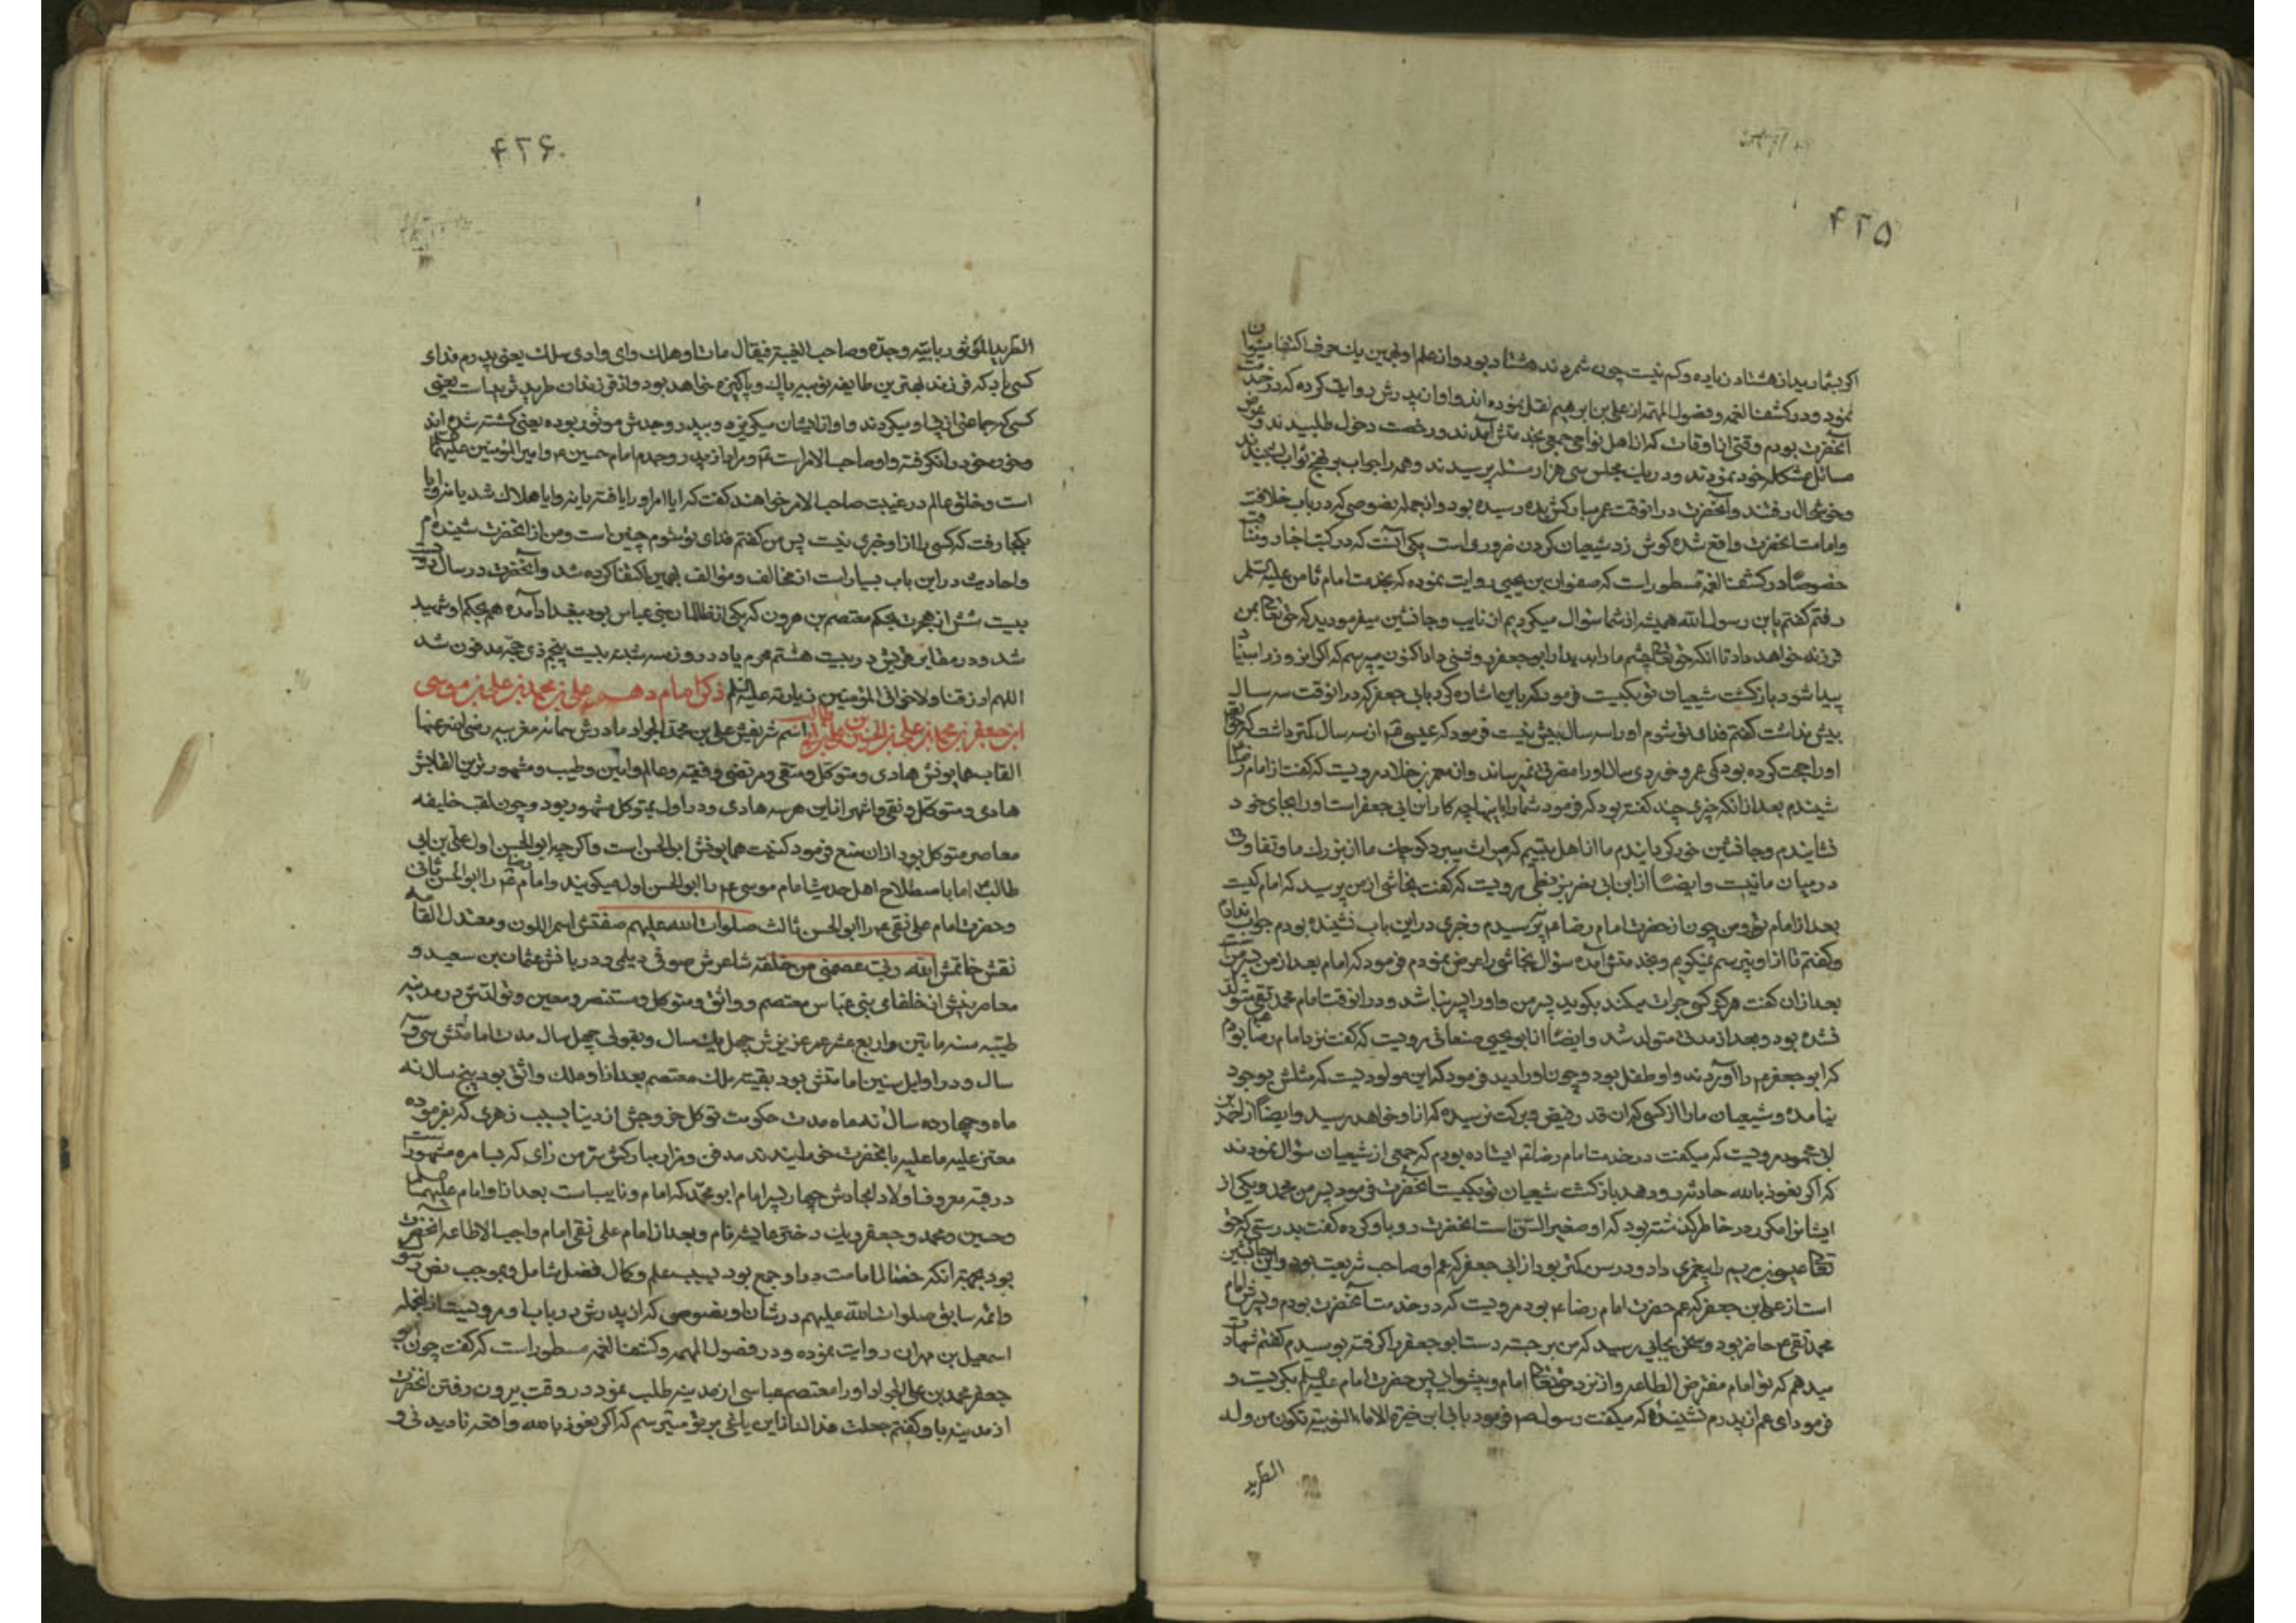 ۴۲۵
اگر بشمارید از هشتاد زیاده و کم نیست چون شمردند هشتاد بود و از علم او بهمین یک حرف اکتفا میتوان
نمود و در کشف الغمه و فصول المهمه از علی بن ابراهیم نقل نموده اند و او از پدرش روایت کرده که در خدمت
آنحضرت بودم وقتی از اوقات که از اهل نواحی جمعی بخدمتش آمدند و رخصت دخول طلبیدند و عرض
مسائل مشکله خود نمودند و در یک مجلس سی هزار مسئله پرسیدند و همه را جواب بر نهج ثواب شنیدند
و خوشحال رفتند و آنحضرت در انوقت عمر مبارکش بده رسیده بود و از جمله نصوصی که در باب خلافت
و امامت انحضرت واقع شده گوش زد شیعیان کردن ضروری است یکی آنست که در کتب اخبار و مناقب
خصوصا در کشف الغمه مسطور است که صفوان بن یحیی روایت نموده که بخدمت امام ثامن علیه السلم
رفتم گفتم یا بن رسول الله همیشه از شما سؤال میکردیم از نایب و جانشین میفرمودید که حق تعالی بمن
فرزند خواهد داد تا انکه حق تعالی چشم ما را بدیدار ابو جعفر روشنی داد اکنون میپرسم که اگر این روز را سبنا
پیدا شود بازگشت شیعیان تو بکیست فرمود که باین اشاره کرد بابی جعفر که در انوقت سه سال
بیش نداشت گفتم فدای تو شوم او را سه سال بیش نیست فرمود که عیسی ع از سه سال کمتر داشت که حق تعالی
او را حجت کرده بود کمی عمر و خوردی سال او را مضرتی نمیرساند و از معمر بن خلاد مرویست که گفت از امام رضا
شنیدم بعد از انکه چیزی چند گفته بود که فرمود شما را باینها چه کار این ابی جعفر است او را بجای خود
نشاندم و جانشین خود گردانیدم ما از اهل بیتیم که میراث میبرد کوچک ما از بزرگ ما و تفاوتی
در میان ما نیست و ایضا از ابن ابی نصر بزنطی مرویست که گفت نجاشی از من پرسید که امام کیست
بعد از امام تو و من چون از حضرت امام رضا ع نپرسیدم و خبری در این باب نشنیده بودم جواب ندادم
و گفتم تا از او نپرسم نمیگویم و بخدمتش آمده سؤال نجاشی را عرض نمودم فرمود که امام بعد از من پسر منست
بعد از ان گفت هرگز کسی جرات میکند بگوید پسر من و او را پسر نباشد و در انوقت امام محمد تقی متولد
نشده بود و بعد از مدتی متولد شد و ایضا از ابو یحیی صنعانی مرویست که گفت نزد امام رضا بودم
که ابو جعفر را آوردند و او طفل بود و چون او را دید فرمود که این مولودیست که مثلش بوجود
نیامده و شیعیان ما را از کسی که ان قدر فیض و برکت نرسیده که از او خواهد رسید و ایضا از احمد بن
ابی محمود مرویست که میگفت در خدمت امام رضا ع ایستاده بودم که جمعی از شیعیان سؤال نمودند
که اگر نعوذ بالله حادثه رو دهد بازگشت شیعیان تو بکیست آنحضرت فرمود پسر من محمد و یکی از
ایشانرا مکرر در خاطر گذشته بود که او صغیر السن است انحضرت رو باو کرده گفت بدرستی که حق
تعالی عیسی بن مریم را پیغمبری داد و در سن کمتر بود از ابی جعفر که عمر او صاحب شریعت بود و این جانشین
است از علی بن جعفر که عم حضرت امام رضا ع بود مرویست که در خدمت آنحضرت بودم و پسرش امام
محمد تقی ع حاضر بود و سخن بجایی رسید که من برجسته دست ابو جعفر را گرفته بوسیدم گفتم شهادت
میدهم که تو امام مفترض الطاعه و از نزد حق تعالی امام و پیشوایی پس حضرت امام علیه السلم بگریست و
فرمود ای عم از پدرم نشنیدهٔ که میگفت رسول ص فرمود بابی ابن خیرة الاماء النوبیه تکون من ولده
الطرید
۴۲۶
الطرید الموتور بابیه و جده و صاحب الغیبة فیقال مات او هلک و ای وادی سلک یعنی پدرم فدای
کسی باد که فرزند بهترین طایفه نوبیه پاک و پاکیزه خواهد بود و از فرزندان طرید شریداست یعنی
کسی که جماعتی از پی او میگردند و او از ایشان میگریزد و بپدر و جدش موتور بوده یعنی کشته شده اند
و خون خود را نگرفته و او صاحب الامر است ع و مراد از پدر و جدم امام حسین ع و امیر المؤمنین علیهما السلم
است و خلق عالم در غیبت صاحب الامر خواهند گفت که ایا امر او را یافته یا نه و ایا هلاک شد یا نه و ایا
بکجا رفت که کسی را از او خبری نیست پس من گفتم فدای تو شوم چنین است و من از انحضرت شنیده ام
و احادیث در این باب بسیار است از مخالف و مؤالف بهمین اکتفا کرده شد و آنحضرت در سال دویست
بیست شش از هجرت بحکم معتصم بن هرون که یکی از ظالمان بنی عباس بود ببغداد آمده هم بحکم او شهید
شد و در مقابر قریش در بیست هشتم محرم یا در روز سه شنبه بیست پنجم ذی حجه مدفون شد
اللهم ارزقنا ولاخوانی المؤمنین زیارته علیه السلم ذکر امام دهم علی بن محمد بن علی بن موسی
ابن جعفر بن محمد بن علی بن الحسین بن علی بن ابی طالب اسم شریفش علی بن محمد الجواد مادرش سمانه مغربیه رضی الله عنها
القاب همایونش هادی و متوکل و متقی و مرتضی و فقیه و عالم و امین و طیب و مشهورترین القابش
هادی و متوکل و نقی و اشهر از این هر سه هادی و در اول بمتوکل مشهور بود و چون لقب خلیفه
معاصر متوکل بود از ان منع فرمود کنیت همایونش ابو الحسن است و اگر چه ابو الحسن اول علی بن ابی
طالب ع اما باصطلاح اهل حدیث امام موسی ع را ابو الحسن اول میگویند و امام رضا ع را ابو الحسن ثانی
و حضرت امام علی نقی ع را ابو الحسن ثالث صلوات الله علیهم صفتش اسمر اللون و معتدل القامه
نقش خاتمش الله ربی عصمتی من خلقه شاعرش صوفی دیلمی و دربانش عثمان بن سعید و
معاصرینش از خلفای بنی عباس معتصم و واثق و متوکل و مستنصر و معین و تولدش در مدینه
طیبه سنه ماتین و اربع عشر عمر عزیزش چهل یک سال و بقولی چهل سال مدت امامتش سی و سه
سال و در اوایل سنین امامتش بود بقیه ملک معتصم بعد از او ملک واثق بود پنج سال نه
ماه و چهارده سال نه ماه مدت حکومت توکل خروجش از دنیا بسبب زهری که بفرموده
معتز علیه ما علیه بانحضرت خورانیدند مدفن و مزار مبارکش سر من رای که بسامره مشهور است
در قبه معروف اولاد امجادش چهار پسر امام ابو محمد که امام و نایب است بعد از او امام علیهما السلم
و حسین و محمد و جعفر و یک دختر عایشه نام و بعد از امام علی نقی امام واجب الاطاعه انحضرت
بود بجهة انکه خصال امامت در او جمع بود بسبب علم و کمال فضل شامل و بموجب نص رسول
و ائمه سابق صلوات الله علیهم در شان او و نصوصی که از پدرش در باب او مرویست از انجمله
اسمعیل بن مهران روایت نموده و در فصول المهمه و کشف الغمه مسطور است که گفت چون ابو
جعفر محمد بن علی الجواد او را معتصم عباسی از مدینه طلب نمود در وقت بیرون رفتن انحضرت
از مدینه باو گفتم جعلت فداک از این یاغی بر تو میترسم که اگر نعوذ بالله واقعه نادیدنی رو